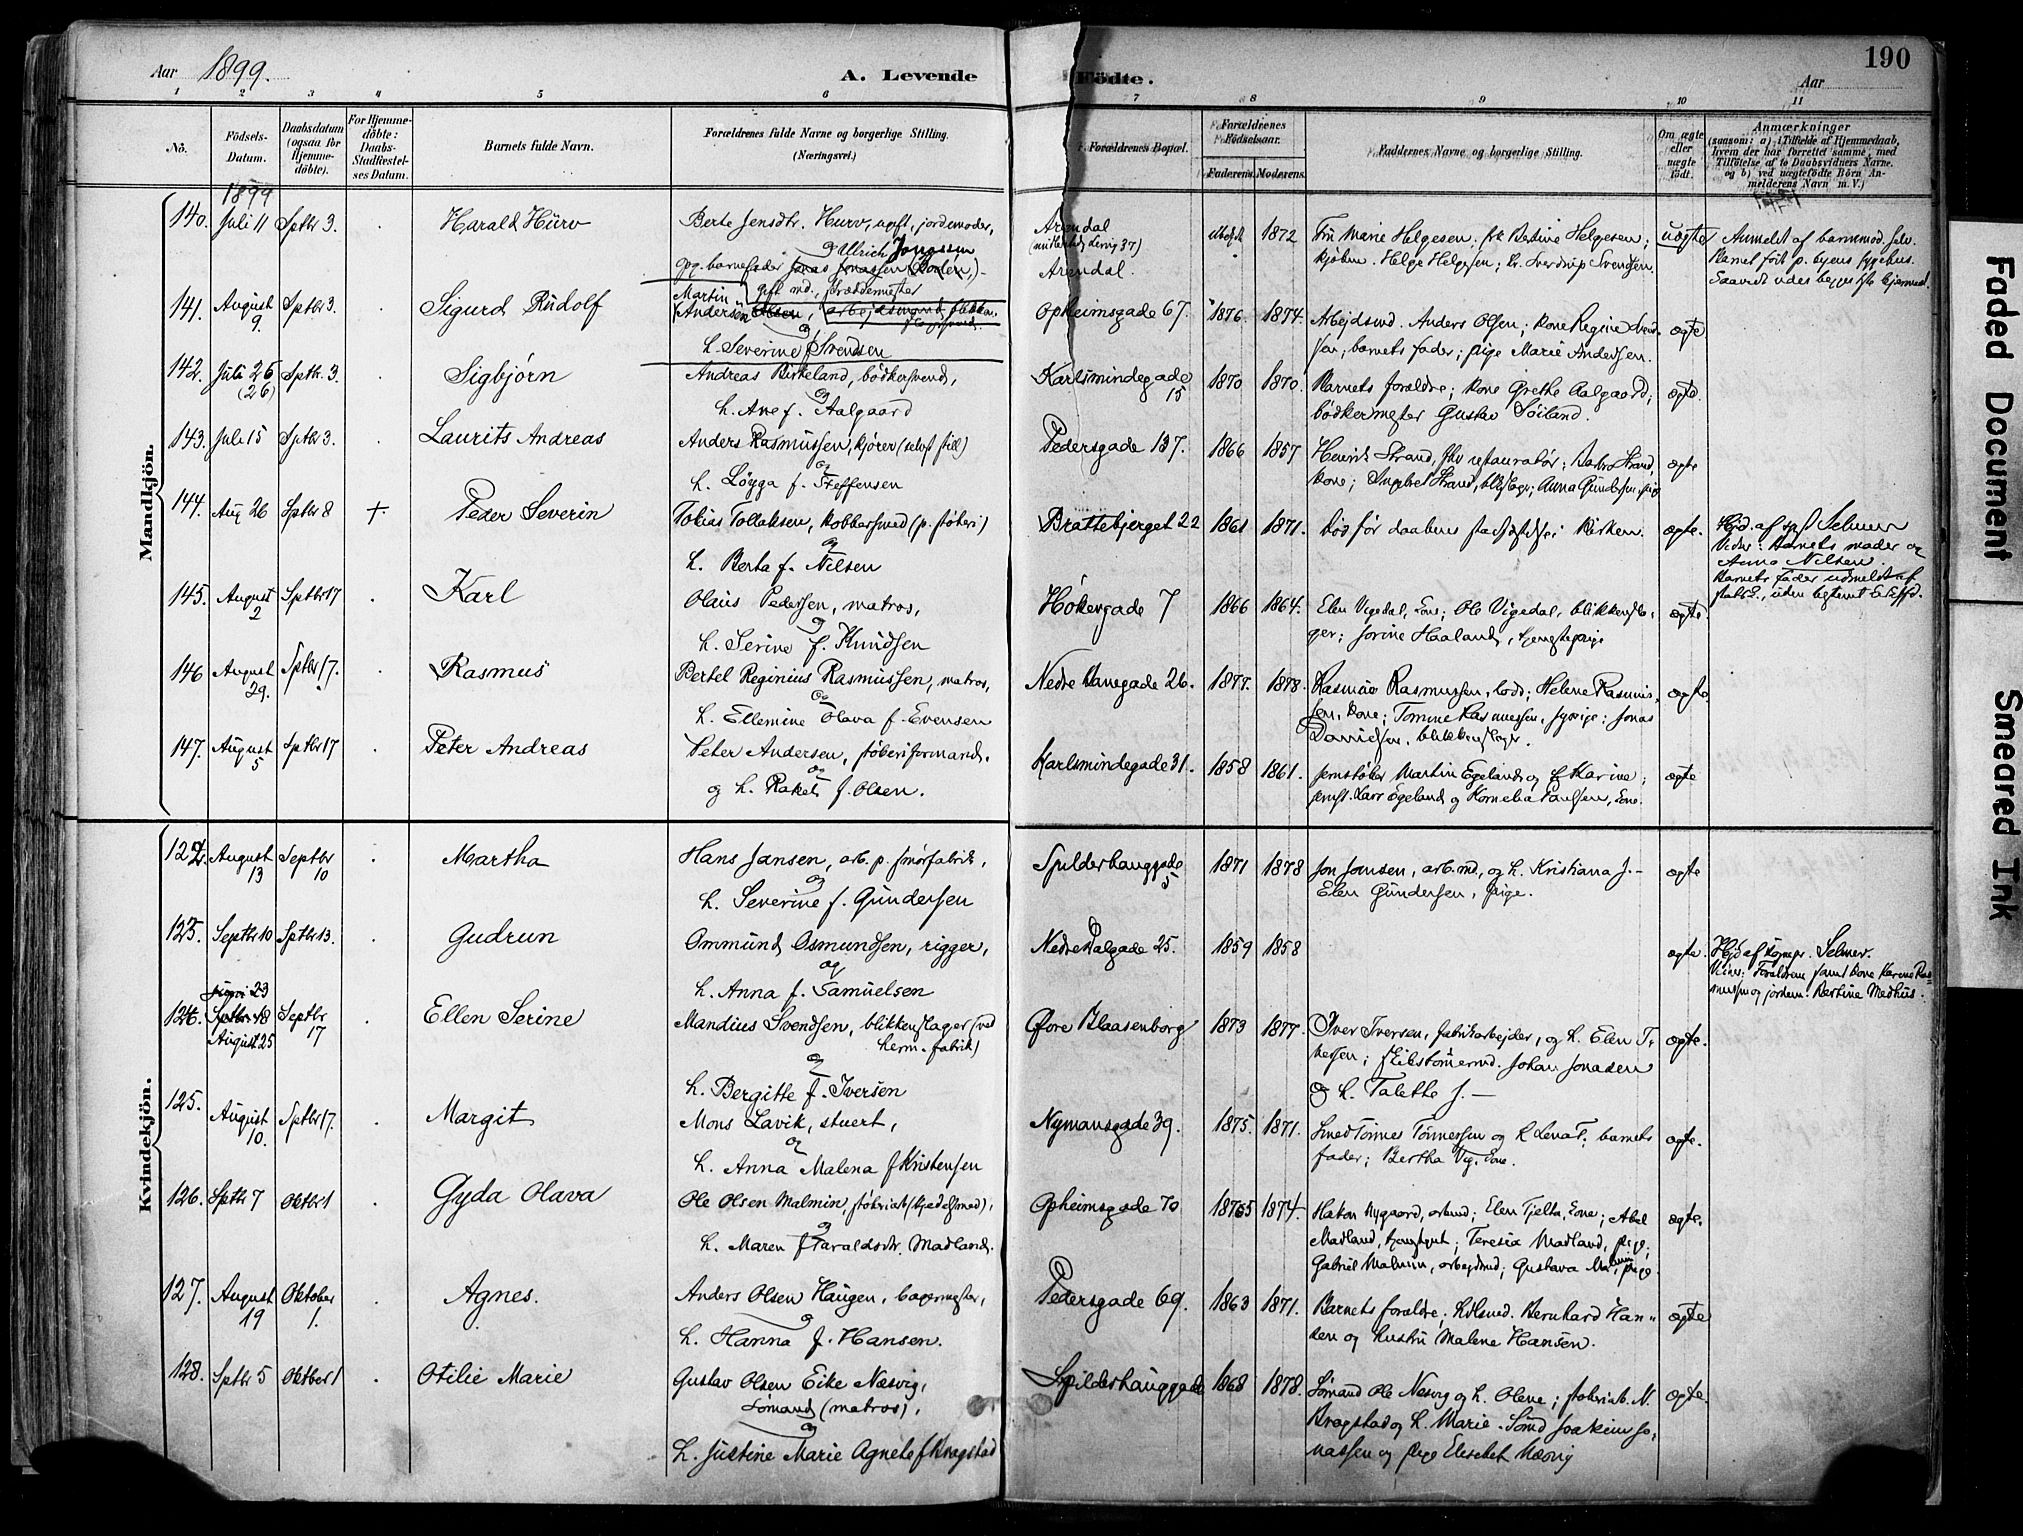 190
Aar 1899.
A. Levende
Födte.
Aar
1 2 3 4 5 6 7 8 9 10 11
No.
Födsels-Datum.
Daabsdatum (ogsaa for Hjemme-döbte).
For Hjemme-döbte: Daabs-Stadfæstel-ses Datum.
Barnets fulde Navn.
Forældrenes fulde Navne og borgerlige Stilling. (Næringsvei.)
Forældrenes Bopæl.
Forældrenes Födselsaar.
Faderens. Moderens.
Faddernes Navne og borgerlige Stilling.
Om ægte eller uægte födt.
Anmærkninger
(saasom: a) i Tilfælde af Hjemmedaab, hvem der har forrettet samme, med Tilföielse af to Daabsvidners Navne, og b) ved uægtefödte Börn Anmelderens Navn m. V.)
Mandkjön.
1899
140. Juli 11 Sptbr 3. Harald Hurv
Berte Jensdtr. Hurv, ugift, jordemoder,
og Ullrich Jonassen
opg. barnefader Jonas Jonassen
gift md., brædemester
Arendal
Arendal.
1872
Fru Marie Helgesen; frk Bertine Helgesen;
kjøbm. Helge Helgesen; Dr. Sverdrup Svendsen.
uægte
Anmeldt af barnmod. selv.
Barnet født p. byens sygehus.
141. August 9. Sptbr 3. Sigurd Rudolf
Martin Andersen Olsen, arbejdsmand
og
h. Severine f. Svendsen
Opheimsgade 67. 1876. 1874.
Arbejdsmd. Anders Olsen; kone Regine Svend-
sen; barnets fader; pige Marie Andersen.
ægte
142. Juli 26 (26) Sptbr. 3. Sigbjørn
Andreas Birkeland, bødkersvend,
og
h. Ane f. Aalgaard
Karlsmindegade 15 1870 1870.
Barnets forældre; kone Grethe Aalgaard;
bødkermester Gustav Soiland.
ægte.
143. Juli 15 Sptbr 3. Laurits Andreas
Anders Rasmussen, kjører (selvst still)
og
h. Løgga f. Steffensen
Pedersgade 137. 1866 1857
Henrik Strand, restauratør; Barbro Strand,
kone; Ingebr Strand, Anna Gundersen, pige
ægte
144. Aug 26 Sptbr 8 + Peder Severin
Tobias Tollaksen, kobbersmed (p. støberi)
og
h. Berta f. Nilsen
Brattebjerget 22 1861 1871.
død før daabens stadfæstelse i kirken.
ægte.
Hjd. af spr Selmer
Vidner: Barnets moder og
Anna Nilsen.
Barnets fader udmeldt af
145. August 2 Sptbr 17 Karl
Olaus Pedersen, matros,
og
h. Serine f. Knudsen
Høkergade 7 1866 1864.
Elen Vigedal, kone; Ole Vigedal, blikkensla-
ger; Jorine Haaland, tjenestepige
ægte.
146 August 29. Sptbr 17. Rasmus
Bertel Reginius Rasmussen, matros,
og
h. Ellemine Olava f. Evensen
Nedre Banegade 26. 1877. 1878.
Rasmus Rasmussen, lods; Helene Rasmus-
sen, kone; Tomine Rasmussen, sypige; Jonas
Danielsen, blikkenslager.
ægte.
147. August 5 Sptbr 17 Peter Andreas
Peter Andersen, støberiformand.
og
og h. Rakel f. Olsen.
Karlsmindegade 31. 1858 1861.
Jernstøber Martin Egeland og h. Karine;
jernst. Lars Egeland og Kornelia Paulsen, kone.
ægte
Kvindekjön.
122. August 13 Septbr 10 Martha
Hans Jansen, arb. p. smørfabrik,
og
h. Severine f. Gundersen
Spilderhauggade 5 1871 1878
Jon Jonsen, arb.md., og h. Kristiana J.-
Elen Gundersen, pige.
ægte
123. Septbr 10 Sptbr 13. Gudrun
Ommund Osmundsen, rigger,
og
h. Anna f. Samuelsen
Nedre Dalgade 25. 1859 1858
ægte.
Hjd af Selmer.
Vidner: Forældrene samt kone Karine Ras-
mussen og jordem. Bertine Medhus.
124. August 25 Septbr 17 Ellen Serine
Mandius Svendsen, blikkenslager (ved
herm. fabrik)
og
h. Bergitte f. Iversen
Øvre Blaasenborg 1873 1877.
Iver Iversen, fabrikarbejder, og h. Elen I-
versen; skibstømermd. Johan Jonasen
og h. Talette J.-
ægte.
125. August 10. Sptbr 17. Margit
Mons Lavik, stuert,
og
h. Anna Malena f Kristensen
Nymansgade 39. 1875. 1871.
Smed Tønnes Tønnessen og h Lena T. barnets
fader; Bertha Vig, kone.
ægte.
126. Sptbr 7 Oktbr 1 Gyda Olava
Ole Olsen Malmin, støberiarb (kjedelsmed),
og
h. Maren f Haraldsdtr. Madland.
Opheimsgade 70 1875 1874.
Hakon Nygaard, arbmd; Elen Tjelta, kone; Abel
Madland, tjenestgut; Teresia Madland, pige;
Gabriel Malmin, arbejdsmd; Gustava Malmin, pige.
ægte.
127. August 19 Oktober 1. Agnes.
Anders Olsen Haugen, bagermester,
og
h. Hanna f. Hansen.
Pedersgade 69. 1863 1871.
Barnets forældre; Bernhard Han-
sen og hustru Malene Hansen.
ægte
128. Sptbr 5 Oktber 1 Otilie Marie
Gustav Olsen Eike Næsvig,
sømand (matros),
og
h. Justine Marie Agnete f Kragstad
Spilderhauggade 1868 1878.
Sømand Ole Nesvig og h. Olene; fabriarb. N.
Kragstad og h. Marie. Sømd Joakim Jo-
nassen og pige Elisabet Næsvig
ægte.
Faded Document
Smeared Ink